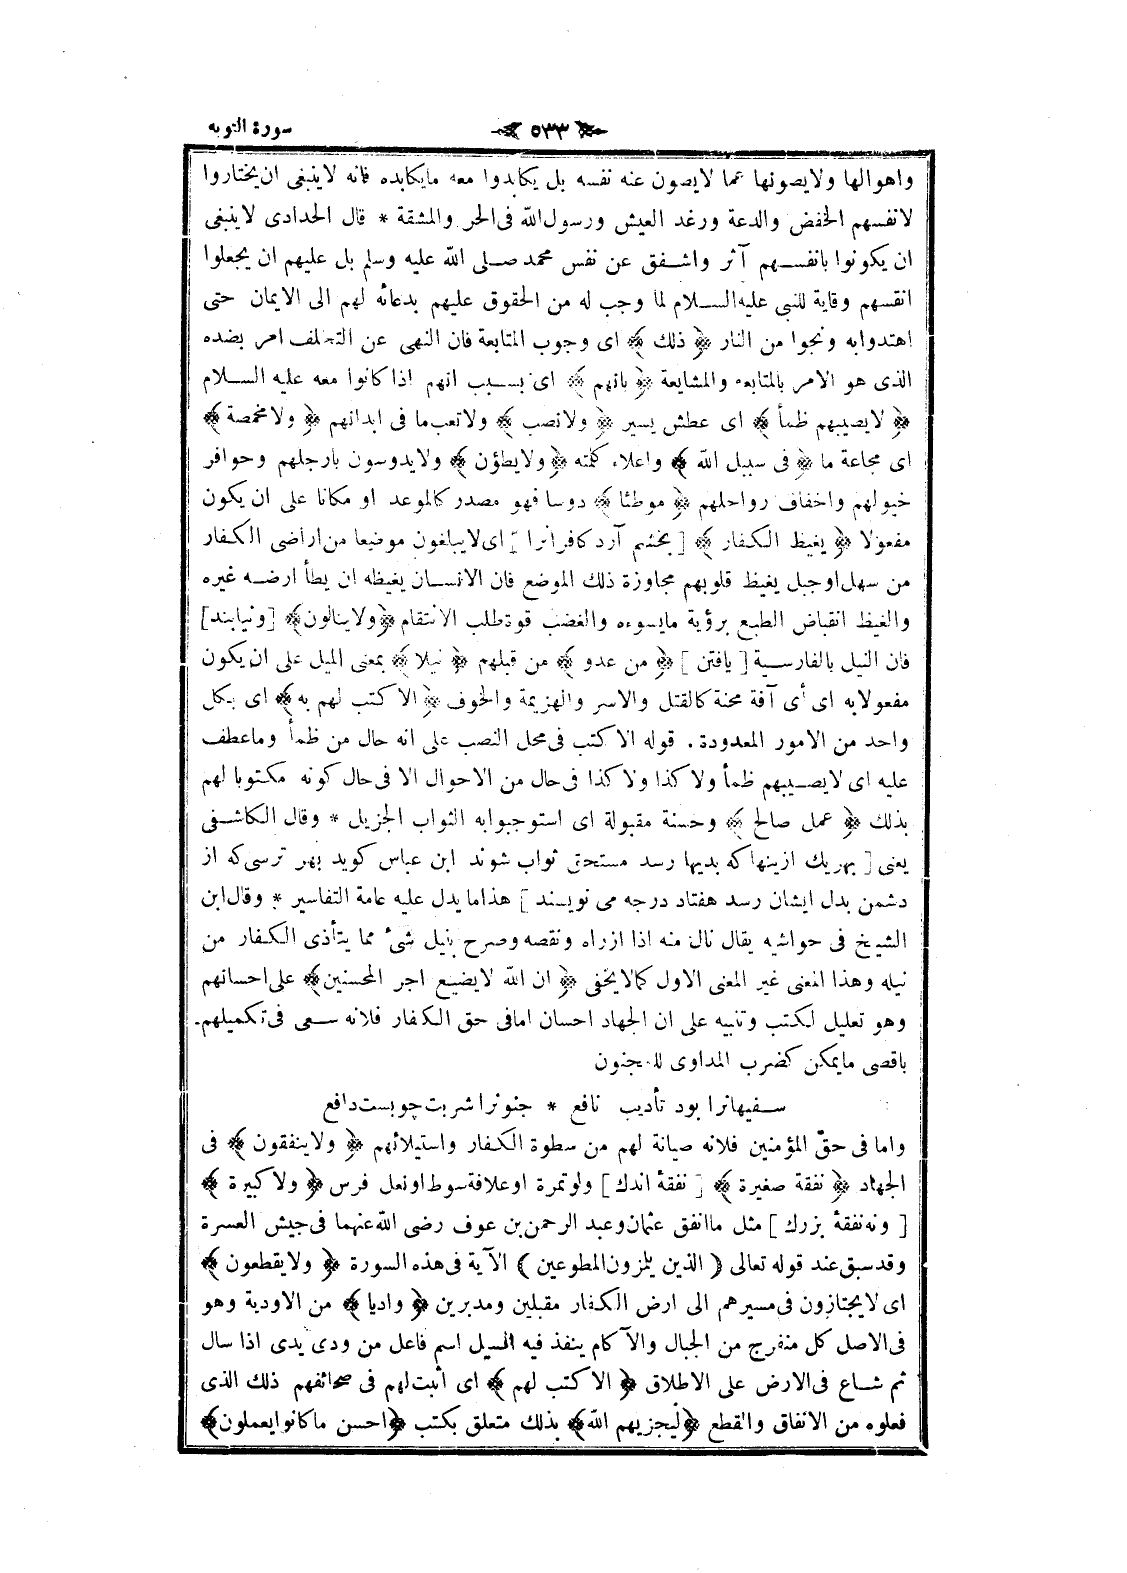 سورة التوبه
٥٣٣
واهوالها ولايصونها عما لايصون عنه نفسه بل يكابدوا معه مايكابده فانه لاينبغى ان يختاروا
لانفسهم الخفض والدعة ورغد العيش ورسول الله فى الحر والمشقة * قال الحدادى لاينبغى
ان يكونوا بانفسهم آثر واشفق عن نفس محمد صلى الله عليه وسلم بل عليهم ان يجعلوا
انفسهم وقاية للنبى عليه السلام لما وجب له من الحقوق عليهم بدعائه لهم الى الايمان حتى
اهتدوابه ونجوا من النار ﴿ ذلك ﴾ اى وجوب المتابعة فان النهى عن التخلف امر بضده
الذى هو الامر بالمتابعه والمشايعة ﴿ بانهم ﴾ اى بسبب انهم اذا كانوا معه عليه السلام
﴿ لايصيبهم ظمأ ﴾ اى عطش يسير ﴿ ولانصب ﴾ ولاتعب ما فى ابدانهم ﴿ ولامخمصة ﴾
اى مجاعة ما ﴿ فى سبيل الله ﴾ واعلاء كلمته ﴿ ولايطؤن ﴾ ولايدوسون بارجلهم وحوافر
خيولهم واخفاف رواحلهم ﴿ موطئا ﴾ دوسا فهو مصدر كالموعد او مكانا على ان يكون
مفعولا ﴿ يغيظ الكفار ﴾ [ بخشم آرد كافرانرا ] اى لايبلغون موضعا من اراضى الكفار
من سهل او جبل يغيظ قلوبهم مجاوزة ذلك الموضع فان الانسان يغيظه ان يطأ ارضه غيره
والغيظ انقباض الطبع برؤية مايسوءه والغضب قوة طلب الانتقام ﴿ ولاينالون ﴾ [ ونيابند ]
فان النيل بالفارسية [ يافتن ] ﴿ من عدو ﴾ من قبلهم ﴿ نيلا ﴾ بمعنى الميل على ان يكون
مفعولابه اى أى آفة محنة كالقتل والاسر والهزيمة والخوف ﴿ الا كتب لهم به ﴾ اى بكل
واحد من الامور المعدودة . قوله الا كتب فى محل النصب على انه حال من ظمأ وماعطف
عليه اى لايصيبهم ظمأ ولا كذا ولا كذا فى حال من الاحوال الا فى حال كونه مكتوبا لهم
بذلك ﴿ عمل صالح ﴾ وحسنة مقبولة اى استوجبوابه الثواب الجزيل * وقال الكاشفى
يعنى [ بهريك ازينها كه بديها رسد مستحق ثواب شوند ابن عباس كويد بهر ترسى كه از
دشمن بدل ايشان رسد هفتاد درجه مى نويسند ] هذا مايدل عليه عامة التفاسير * وقال ابن
الشيخ فى حواشيه يقال نال منه اذا ازراه ونقصه وصرح بنيل شئ مما يتأذى الكفار من
نيله وهذا المعنى غير المعنى الاول كمالايخفى ﴿ ان الله لايضيع اجر المحسنين ﴾ على احسانهم
وهو تعليل لكتب وتنبيه على ان الجهاد احسان امافى حق الكفار فلانه سعى فى تكميلهم.
باقصى مايمكن كضرب المداوى للمجنون
سفيهانرا بود تأديب نافع * جنونرا شربت چوبست دافع
واما فى حقّ المؤمنين فلانه صيانة لهم من سطوة الكفار واستيلائهم ﴿ ولاينفقون ﴾ فى
الجهاد ﴿ نفقة صغيرة ﴾ [ نفقۀ اندك ] ولو تمرة او علاقة سوط او نعل فرس ﴿ ولا كبيرة ﴾
[ ونه نفقۀ بزرك ] مثل ماانفق عثمان وعبد الرحمن بن عوف رضى الله عنهما فى جيش العسرة
وقد سبق عند قوله تعالى ( الذين يلمزون المطوعين ) الآية فى هذه السورة ﴿ ولايقطعون ﴾
اى لايجتازون فى مسيرهم الى ارض الكفار مقبلين ومدبرين ﴿ واديا ﴾ من الاودية وهو
فى الاصل كل منفرج من الجبال والآكام ينفذ فيه السيل اسم فاعل من ودى يدى اذا سال
ثم شاع فى الارض على الاطلاق ﴿ الا كتب لهم ﴾ اى أثبت لهم فى صحائفهم ذلك الذى
فعلوه من الانفاق والقطع ﴿ ليجزيهم الله ﴾ بذلك متعلق بكتب ﴿ احسن ما كانوا يعملون ﴾